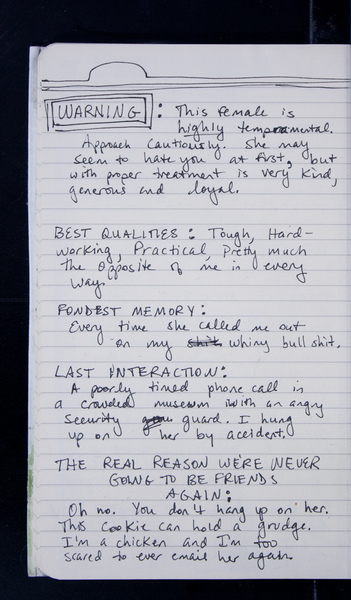 WARNING : This female is
highly tempramental.
Approach Cautiously. She may
seem to hate you at first, but
with proper treatment is very kind,
generous and loyal.
BEST QUALITIES : Tough, Hard-
working, Practical, Pretty much
the opposite of me in every
way.
FONDEST MEMORY :
Every time she called me out
on my shit whiny bull shit.
LAST INTERACTION :
A poorly timed phone call in
a crowded museum with an angry
security guard. I hung
up on her by accident.
THE REAL REASON WE'RE NEVER
GOING TO BE FRIENDS
AGAIN :
Oh no. You don't hang up on her.
This cookie can hold a grudge.
I'm a chicken and I'm too
scared to ever email her again.